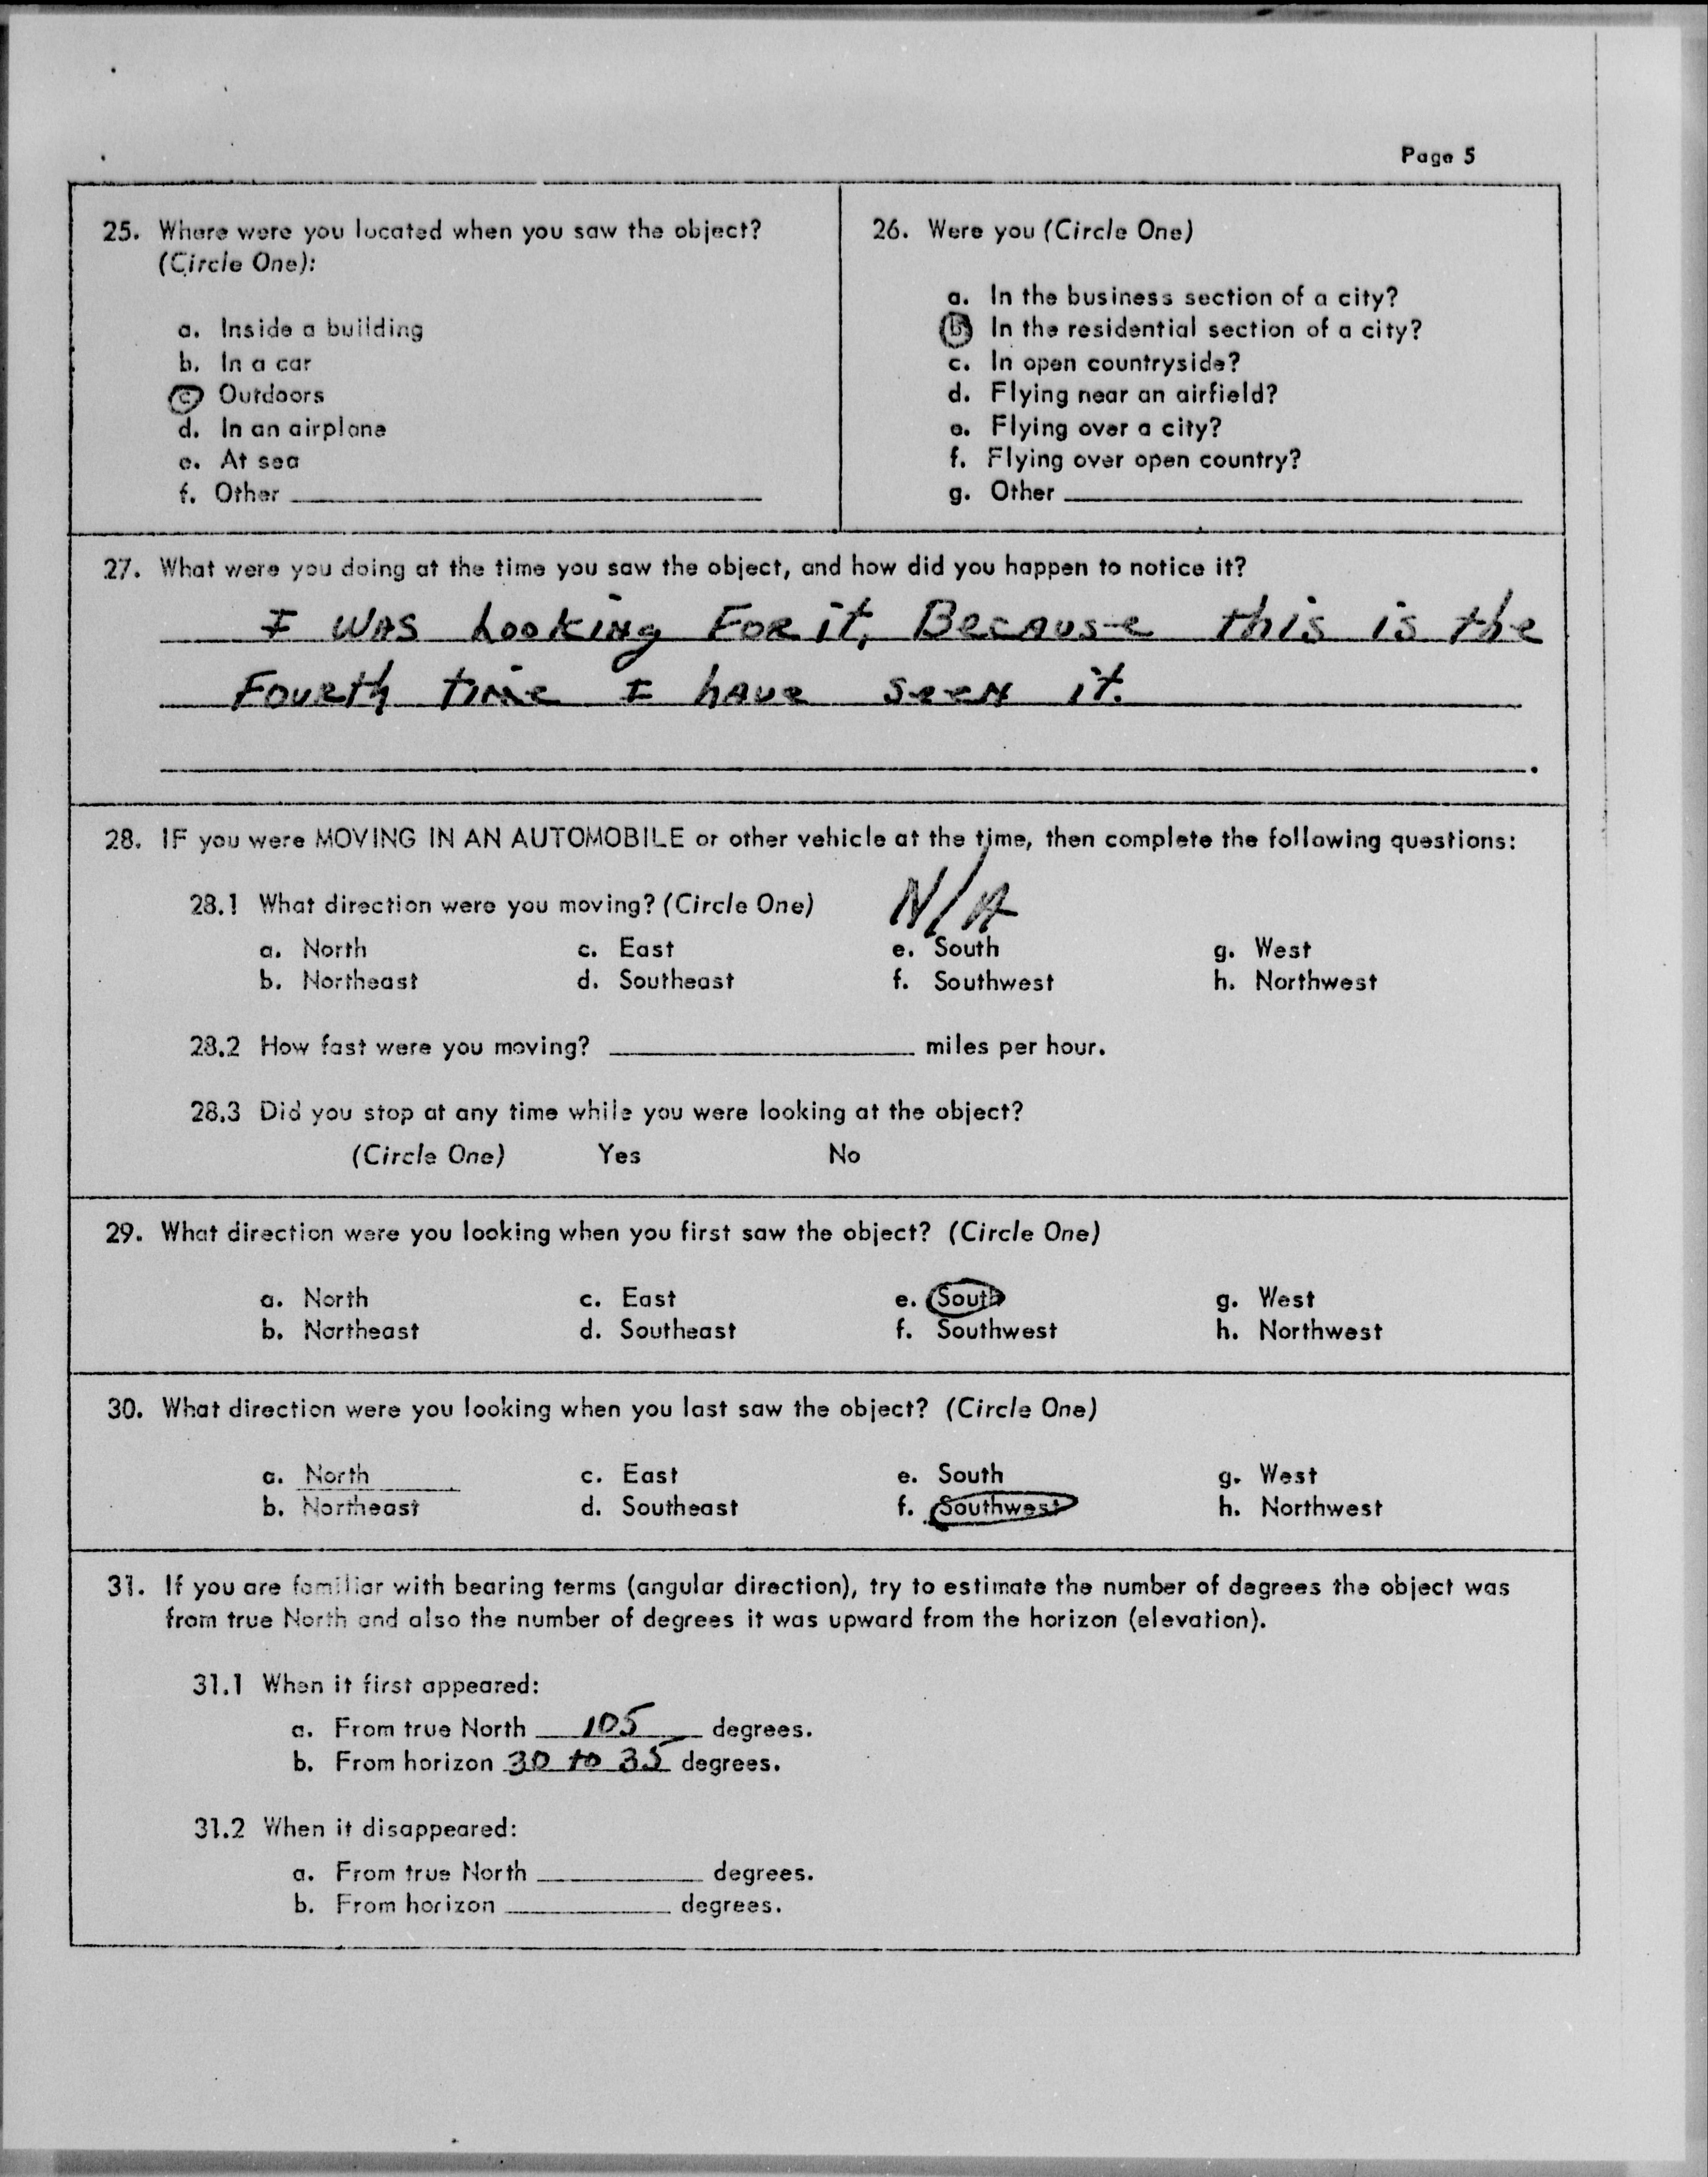 Page 5
25. Where were you located when you saw the object?
(Circle One):
a. Inside a building
b. In a car
c. Outdoors
d. In an airplane
e. At sea
f. Other
26. Were you (Circle One)
a. In the business section of a city?
b. In the residential section of a city?
c. In open countryside?
d. Flying near an airfield?
e. Flying over a city?
f. Flying over open country?
g. Other
27. What were you doing at the time you saw the object, and how did you happen to notice it?
I WAS Looking For it, Because this is the
Fourth time I have seen it.
28. IF you were MOVING IN AN AUTOMOBILE or other vehicle at the time, then complete the following questions:
28.1 What direction were you moving? (Circle One) N/A
a. North c. East e. South g. West
b. Northeast d. Southeast f. Southwest h. Northwest
28.2 How fast were you moving? miles per hour.
28.3 Did you stop at any time while you were looking at the object?
(Circle One) Yes No
29. What direction were you looking when you first saw the object? (Circle One)
a. North c. East e. South g. West
b. Northeast d. Southeast f. Southwest h. Northwest
30. What direction were you looking when you last saw the object? (Circle One)
a. North c. East e. South g. West
b. Northeast d. Southeast f. Southwest h. Northwest
31. If you are familiar with bearing terms (angular direction), try to estimate the number of degrees the object was
from true North and also the number of degrees it was upward from the horizon (elevation).
31.1 When it first appeared:
a. From true North 105 degrees.
b. From horizon 30 to 35 degrees.
31.2 When it disappeared:
a. From true North degrees.
b. From horizon degrees.